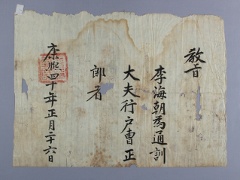 教旨
李海朝為通訓
大夫行戶曹正
郎者
康熙四十年正月二十六日